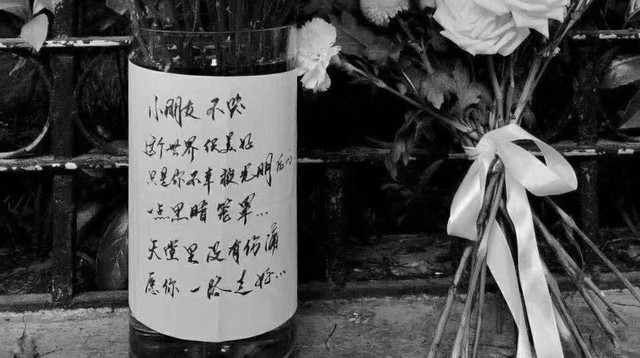 小朋友 不哭
这个世界 很美好
只是你不幸被光明后的
一点黑暗笼罩…
天堂里没有伤痛
愿你一路走好…